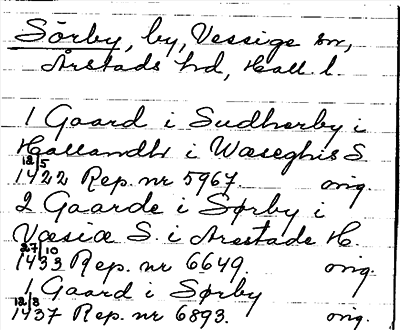 Sörby, by, Vessige sn,
Årstads hd, Hall. l.
1 Gaard i Sudhærby i
Hallandh i Wæseghis S.
12/5
1422 Rep. nr 5967. orig.
2 Gaarde i Sørby i
Væsiæ S. i Arestade H.
27/10
1433 Rep. nr 6649. orig.
1 Gaard i Sørby
12/3
1437 Rep. nr 6893. orig.